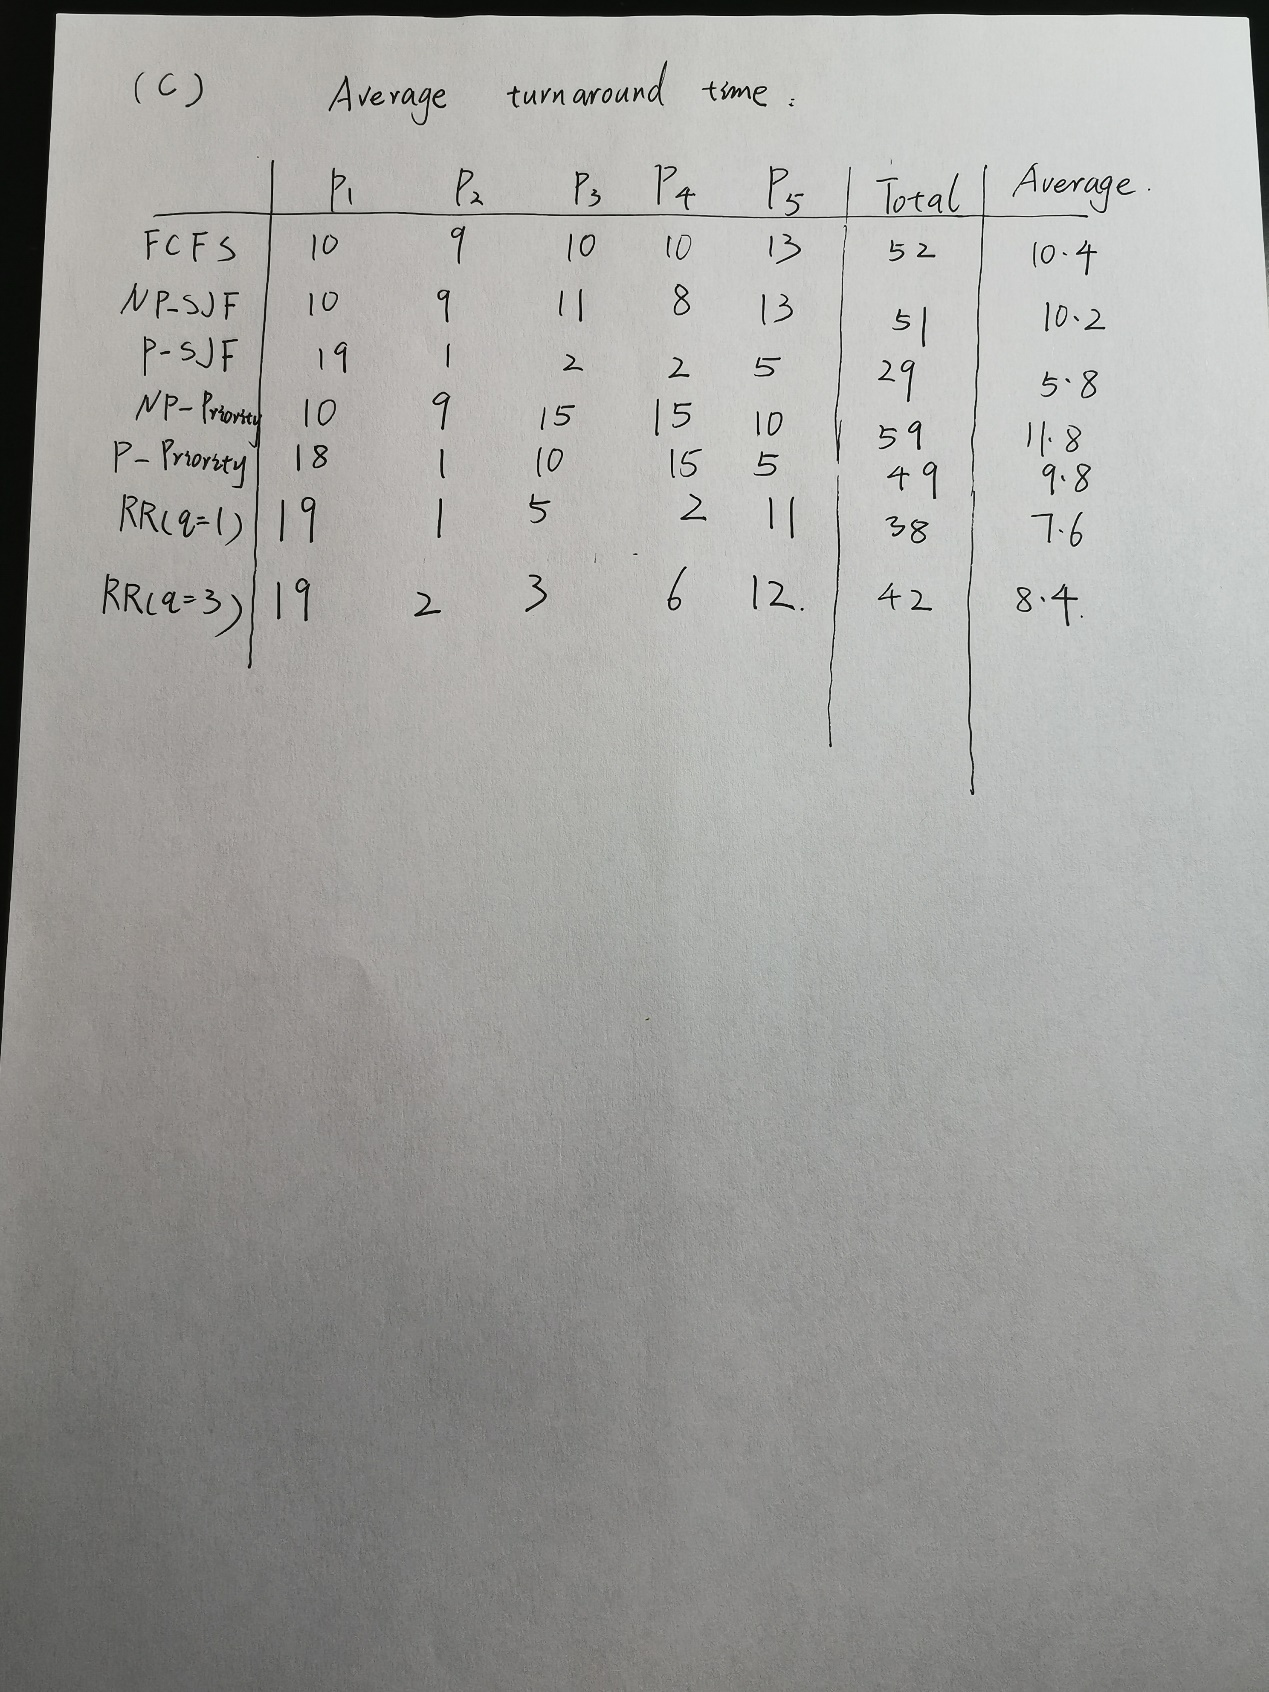 (C) Average turnaround time:
P1 P2 P3 P4 P5 Total Average.
FCFS 10 9 10 10 13 52 10.4
NP-SJF 10 9 11 8 13 51 10.2
P-SJF 19 1 2 2 5 29 5.8
NP-Priority 10 9 15 15 10 59 11.8
P-Priority 18 1 10 15 5 49 9.8
RR(q=1) 19 1 5 2 11 38 7.6
RR(q=3) 19 2 3 6 12. 42 8.4.